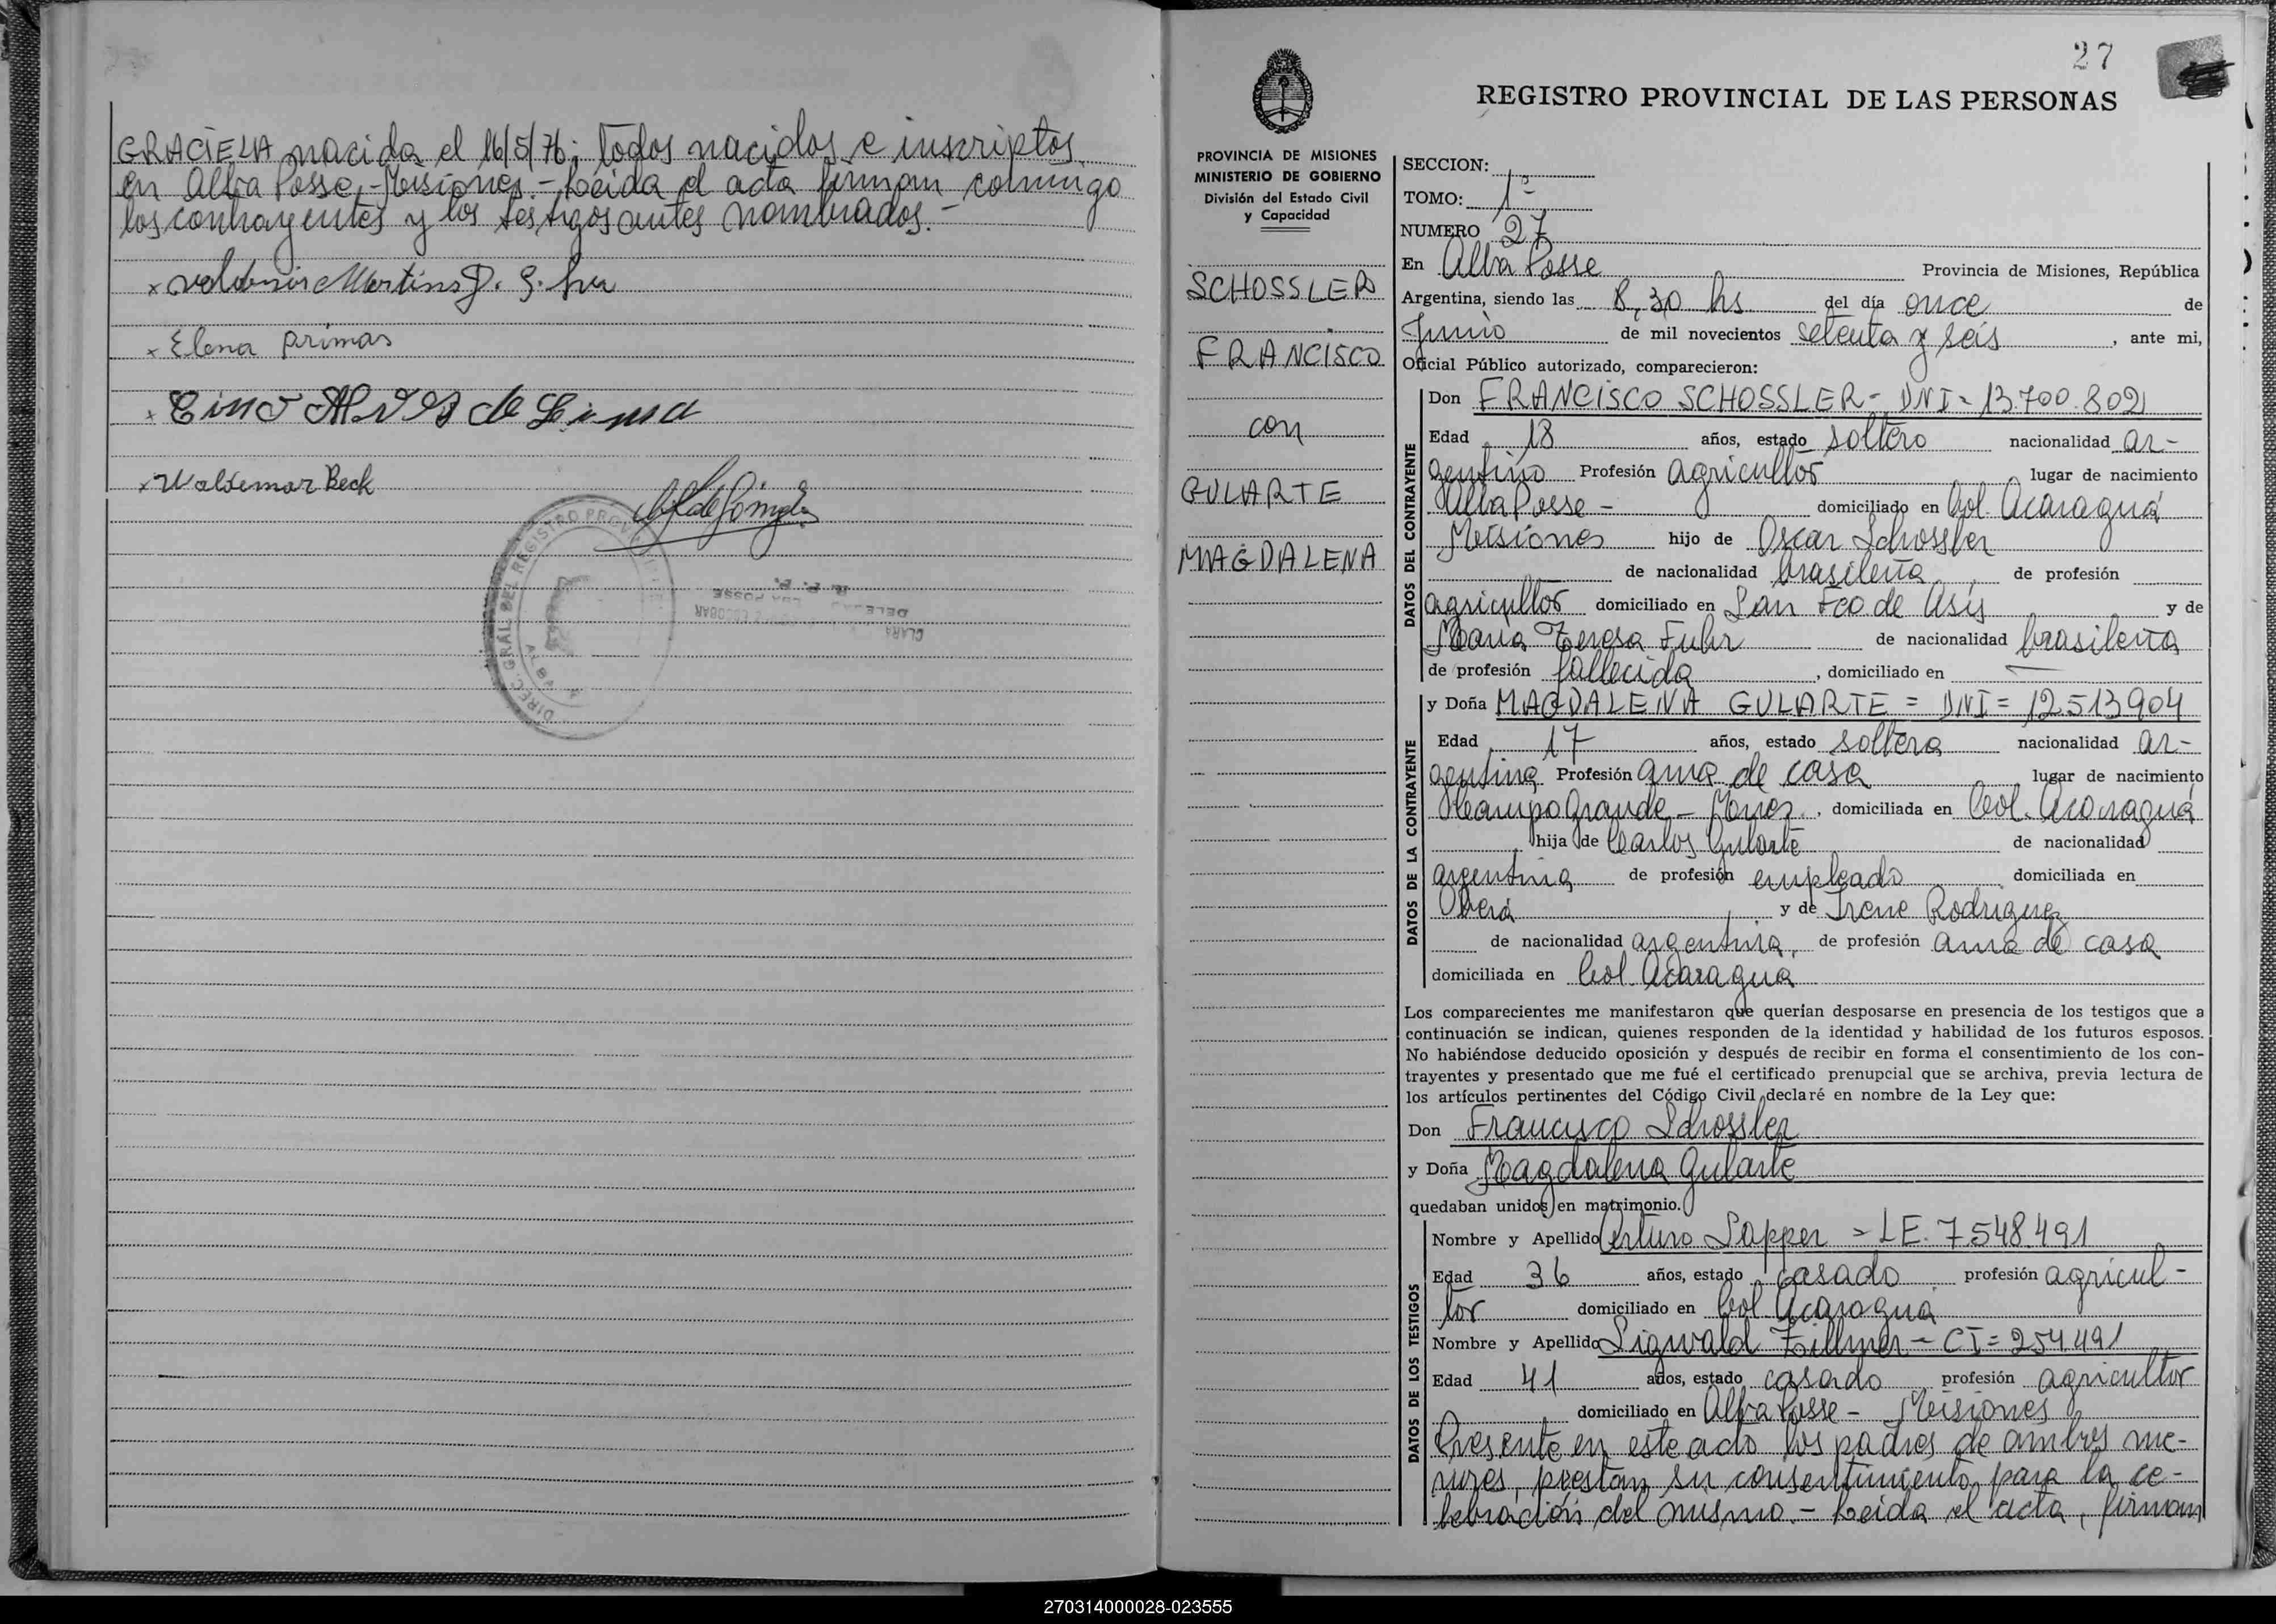 GRACIELA nacida el 16/5/76; todos nacidos e inscriptos
en Alba Posse,-Misiones.- Leída el acta firman conmigo
los contrayentes y los testigos antes nombrados.-
x Martins
x Elena primas
x de Lima
x Waldemar Beck
DIREC. GRAL DEL REGISTRO PROV
27
REGISTRO PROVINCIAL DE LAS PERSONAS
PROVINCIA DE MISIONES
MINISTERIO DE GOBIERNO
División del Estado Civil
y Capacidad
SCHOSSLER
FRANCISCO
con
GULARTE
MAGDALENA
SECCION:
TOMO: 1º
NUMERO 27
En Alba Posse Provincia de Misiones, República
Argentina, siendo las 8,30 hs del día once de
Junio de mil novecientos setenta y seis, ante mi,
Oficial Público autorizado, comparecieron:
DATOS DEL CONTRAYENTE
Don FRANCISCO SCHOSSLER- DNI- 13.700.802
Edad 18 años, estado soltero nacionalidad ar-
gentino Profesión agricultor lugar de nacimiento
Alba Posse - domiciliado en Col. Acaraguá
Misiones hijo de Oscar Schossler
de nacionalidad brasileña, de profesión
agricultor domiciliado en San Fco de Asís y de
Maria Teresa Fuhr de nacionalidad brasileña
de profesión fallecida, domiciliado en —
DATOS DE LA CONTRAYENTE
y Doña MAGDALENA GULARTE = DNI = 12513904
Edad 17 años, estado soltera nacionalidad ar-
gentina Profesión ama de casa lugar de nacimiento
Campo Grande - Mnes., domiciliada en Col. Acaraguá
hija de Carlos Gularte de nacionalidad
argentina de profesión empleado domiciliada en
Oberá y de Irene Rodriguez
de nacionalidad argentina, de profesión ama de casa
domiciliada en Col. Acaragua
Los comparecientes me manifestaron que querían desposarse en presencia de los testigos que a
continuación se indican, quienes responden de la identidad y habilidad de los futuros esposos.
No habiéndose deducido oposición y después de recibir en forma el consentimiento de los con-
trayentes y presentado que me fué el certificado prenupcial que se archiva, previa lectura de
los artículos pertinentes del Código Civil declaré en nombre de la Ley que:
Don Francisco Schossler
y Doña Magdalena Gularte
quedaban unidos en matrimonio.
DATOS DE LOS TESTIGOS
Nombre y Apellido Arturo Sapper = LE. 7.548.491
Edad 36 años, estado casado profesión agricul-
tor domiciliado en Col. Acaragua
Nombre y Apellido Sigwald Zillmer - CI = 254.491
Edad 41 años, estado casado profesión agricultor
domiciliado en Alba Posse - Misiones
Presente en este acto los padres de ambos me-
nores, prestan su consentimiento para la ce-
lebración del mismo.- Leida el acta, firman
270314000028-023555